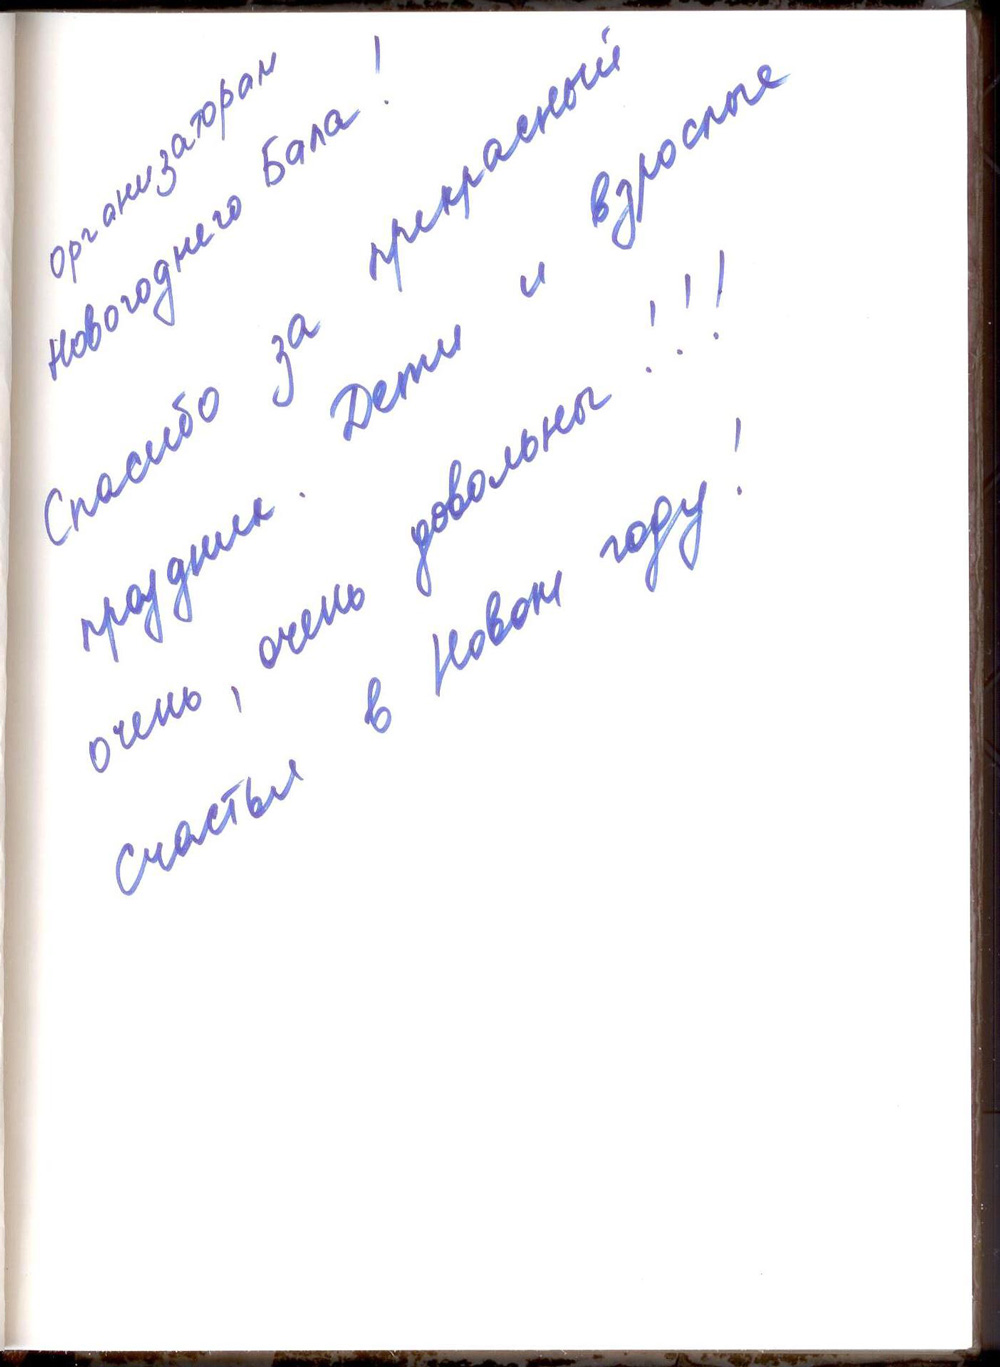 организаторам
Новогоднего Бала!
Спасибо за прекрасный
праздник. Дети и взрослые
очень, очень довольны!!!
Счастья в Новом году!